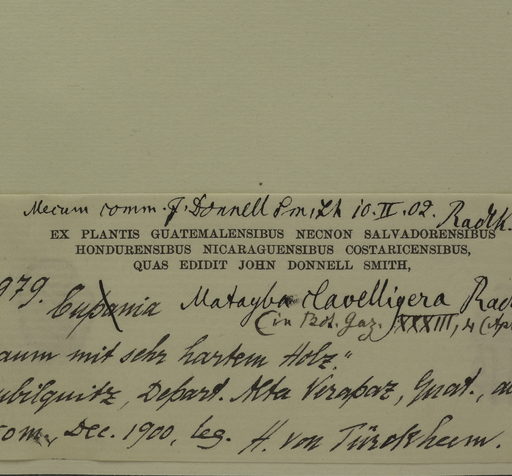 Mecum comm. J. Donnell Smith 10.II.02. Radlk.
EX PLANTIS GUATEMALENSIBUS NECNON SALVADORENSIBUS
HONDURENSIBUS NICARAGUENSIBUS COSTARICENSIBUS,
QUAS EDIDIT JOHN DONNELL SMITH,
979. Cupania Matayba clavelligera Rad
(in Bot. Gaz. XXXIII, 4 (Ap
aum mit sehr hartem Holz."
ubilquitz, Depart. Alta Verapaz, Guat., a
com., Dec. 1900, leg. H. von Türckheim.